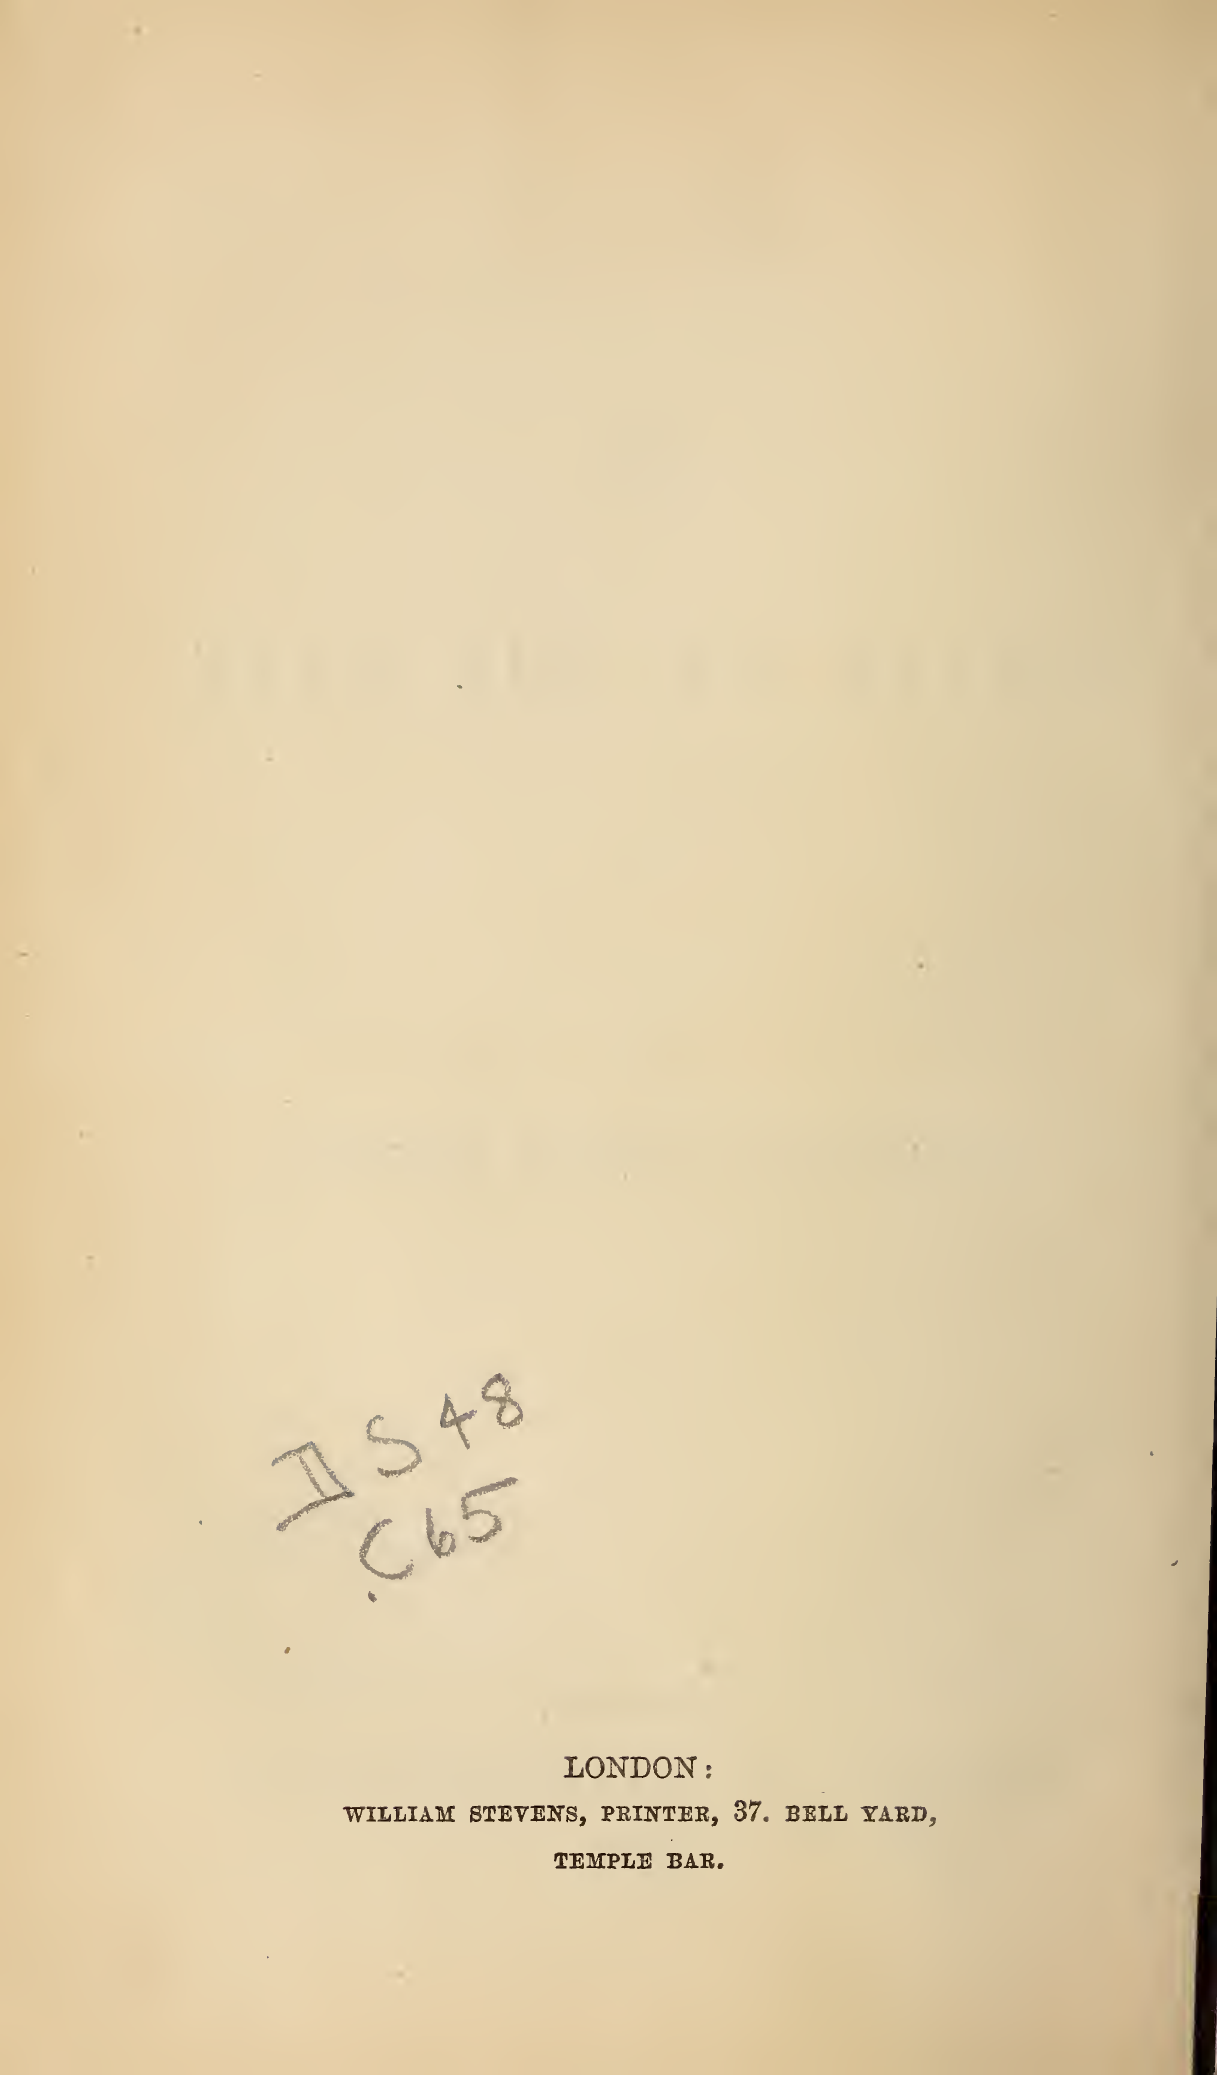 DS48
C65
LONDON:
WILLIAM STEVENS, PRINTER, 37. BELL YARD,
TEMPLE BAR.